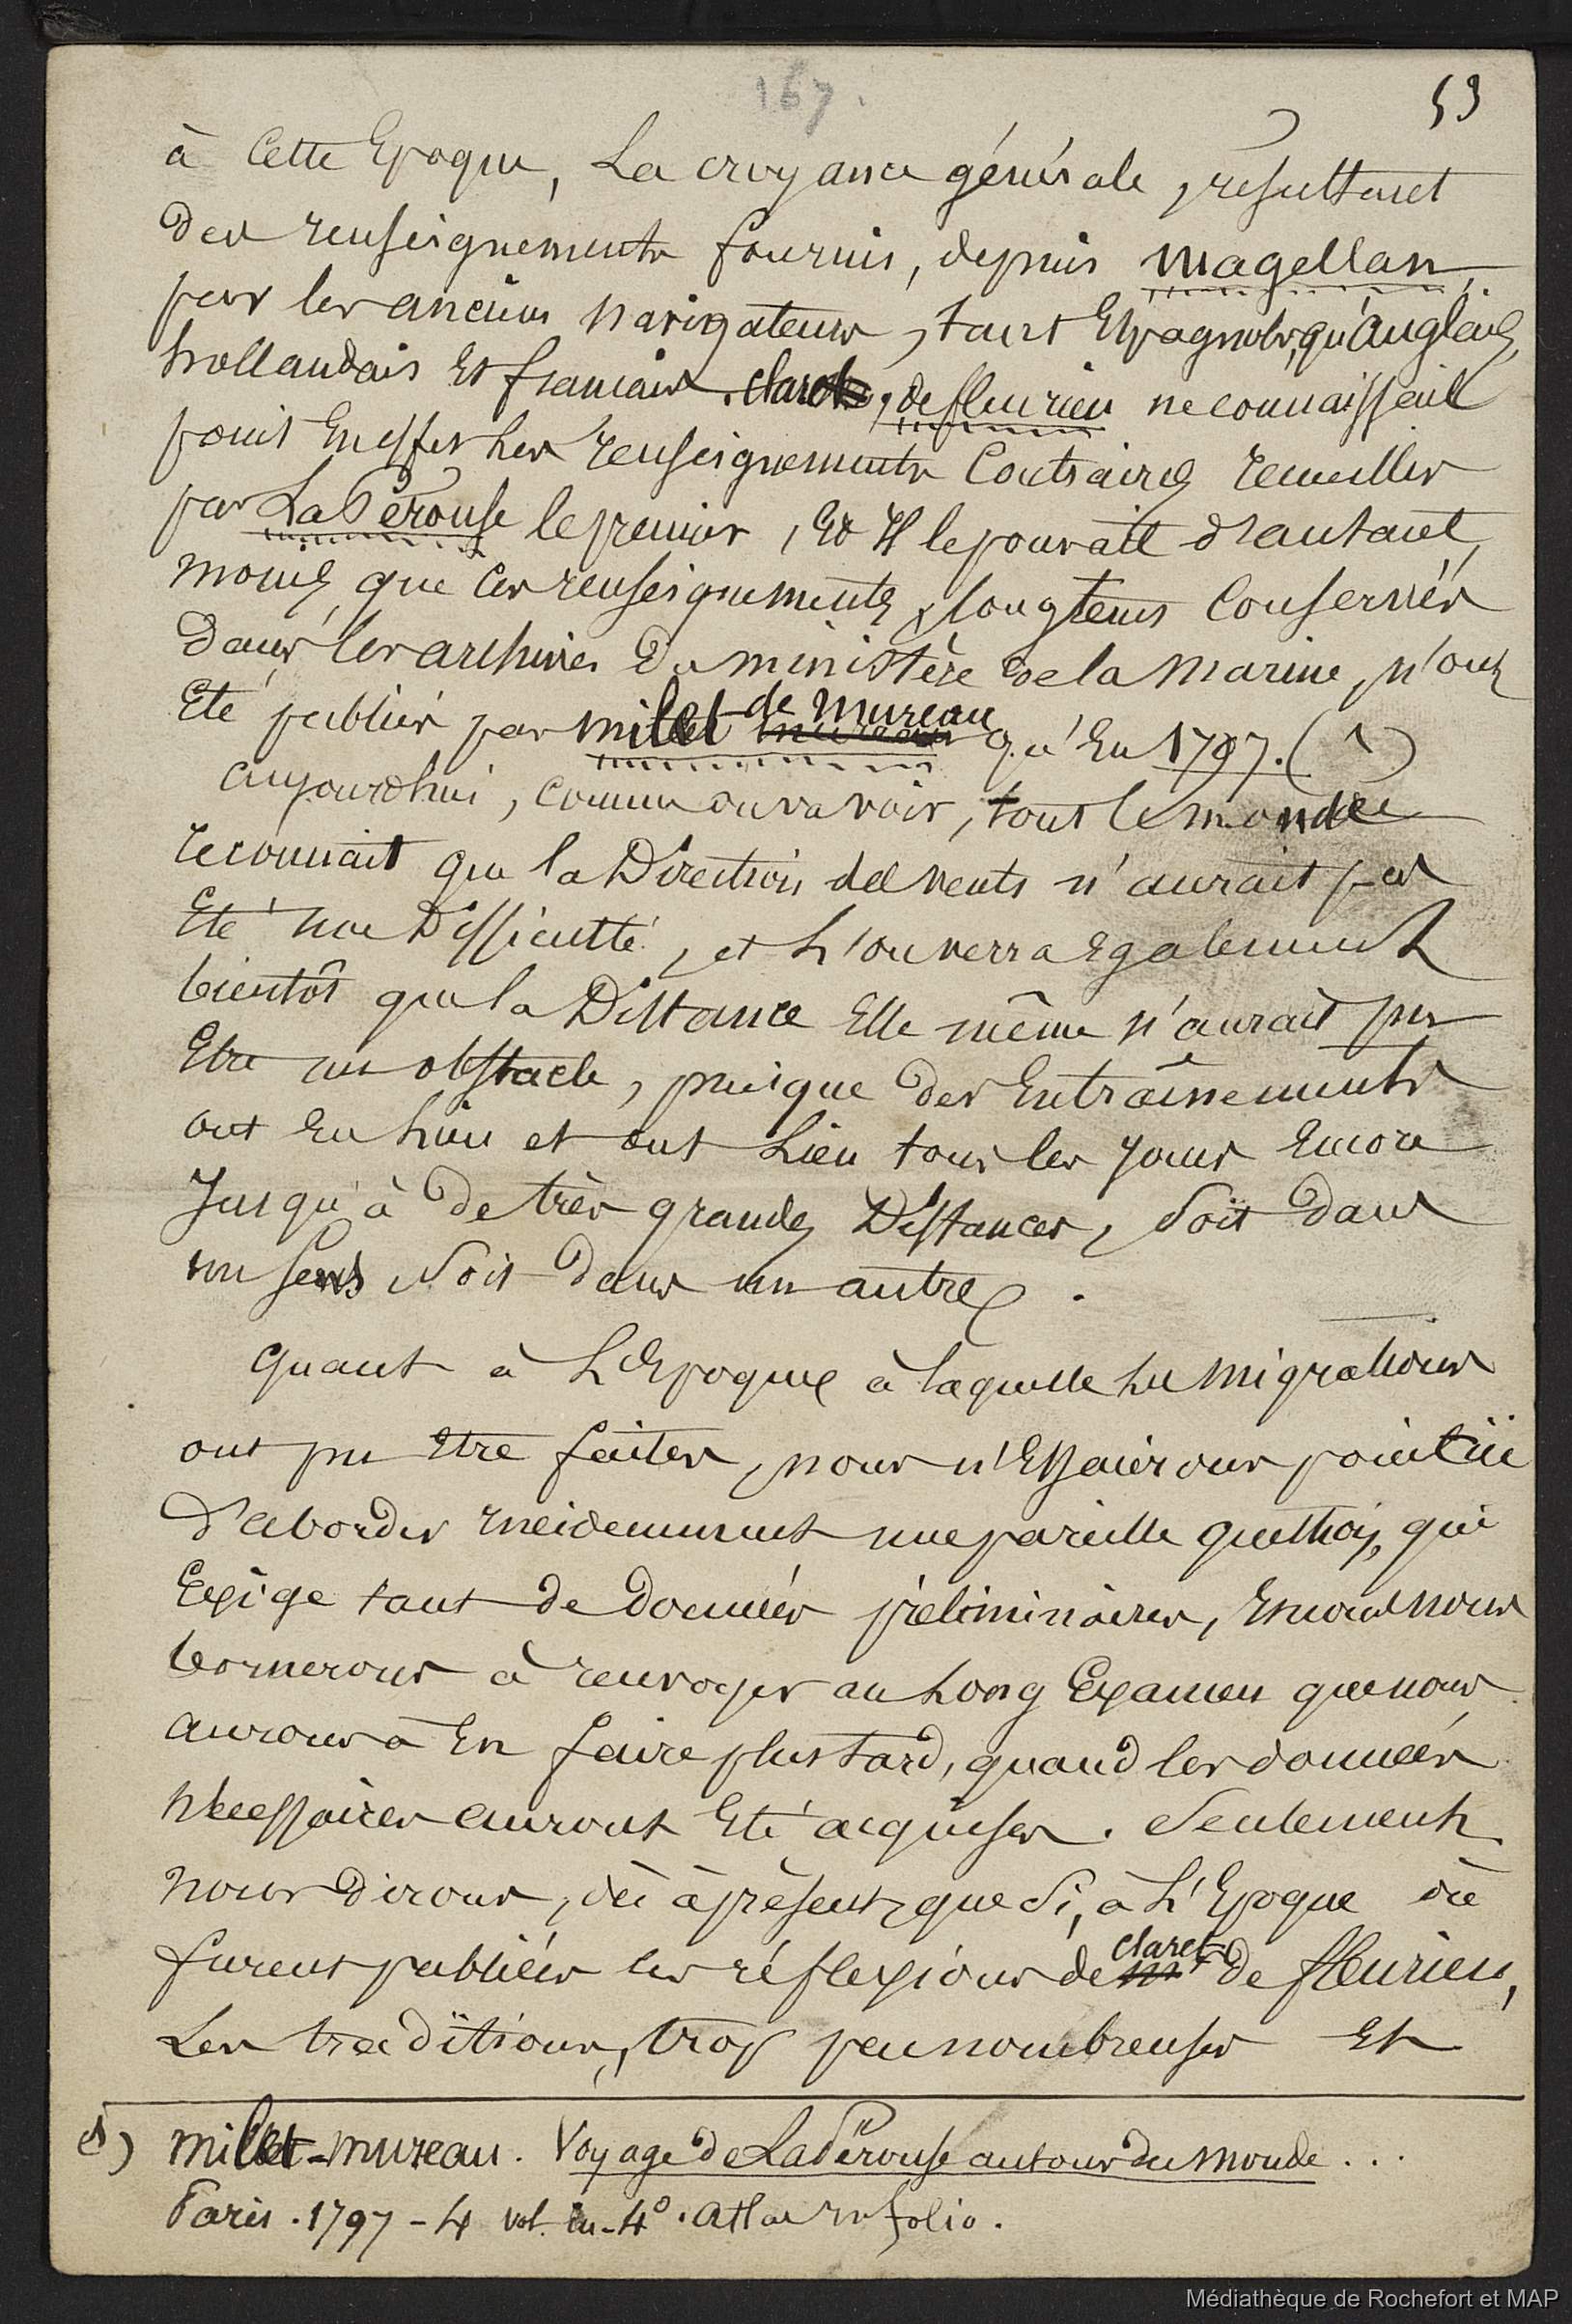 167.
59
à Cette Epoque, La croyance générale, résultant
des renseignements fournis, depuis Magellan,
par les anciens navigateurs, tant Espagnols, qu'anglais,
hollandais et français. claret de fleurieu ne connaissait
point En effet les renseignements Contraires recueillis
par La Pérouse le premier, Et Il le pouvait d'autant
moins que Ces renseignements, longtems Conservés
dans les archives du ministère de la marine, n'ont
Eté publiés par milet de Mureau qu'En 1797. (1)
aujourd'hui, comme on va voir, tout le monde
reconnait que la Direction des vents n'aurait pas
Eté une Difficulté, et L'on verra Egalement
bientôt que la Distance Elle même n'aurait pu
Etre un obstacle, puisque des Entraînements
ont Eu lieu et ont Lieu tous les jours Encore
Jusqu'à de très grandes Distances, Soit dans
un sens Soit dans un autre.
Quant à L'Epoque à laquelle les migrations
ont pu Etre faites, nous n'Essaierons point ici
d'aborder Incidemment une pareille question, qui
Exige tant de Données préliminaires, Et nous nous
bornerons à renvoyer au Long Examen que nous
aurons à En faire plus tard, quand les données
Nécessaires auront Eté acquises. Seulement
nous dirons, dès à présent, que Si, à L'Epoque où
furent publiées les réflexions de claret de fleurieu,
Les traditions, trop peu nombreuses Et
(1) milet-mureau. Voyage de La Pérouse autour du Monde ...
Paris. 1797 - 4 vol. in-4°. Atlas In folio.
Médiathèque de Rochefort et MAP